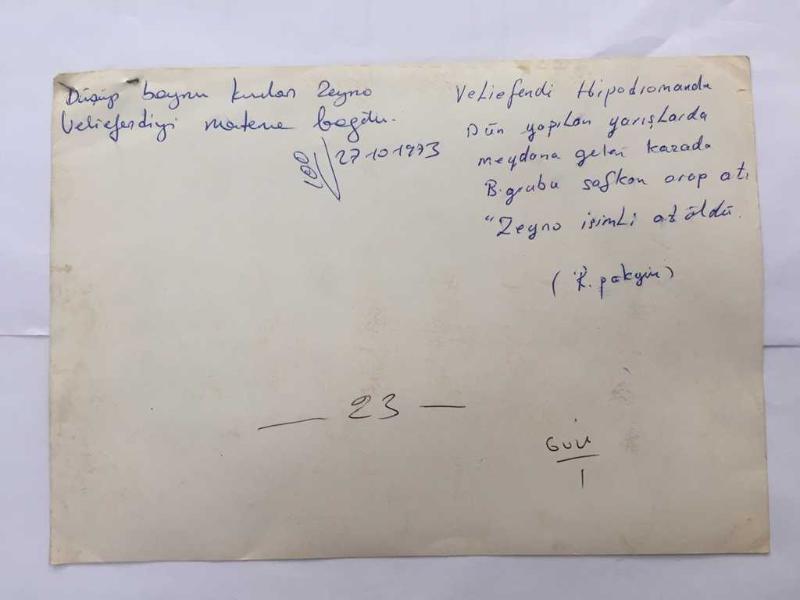 Düşüp boynu kırılan Zeyno
Veliefendiyi mateme boğdu.
100
27-10-1973
Veliefendi Hipodromanda
Dün yapılan yarışlarda
meydana gelen kazada
B. grubu safkan arap atı
"Zeyno isimli at öldü.
(K. pakyüz)
— 23 —
1